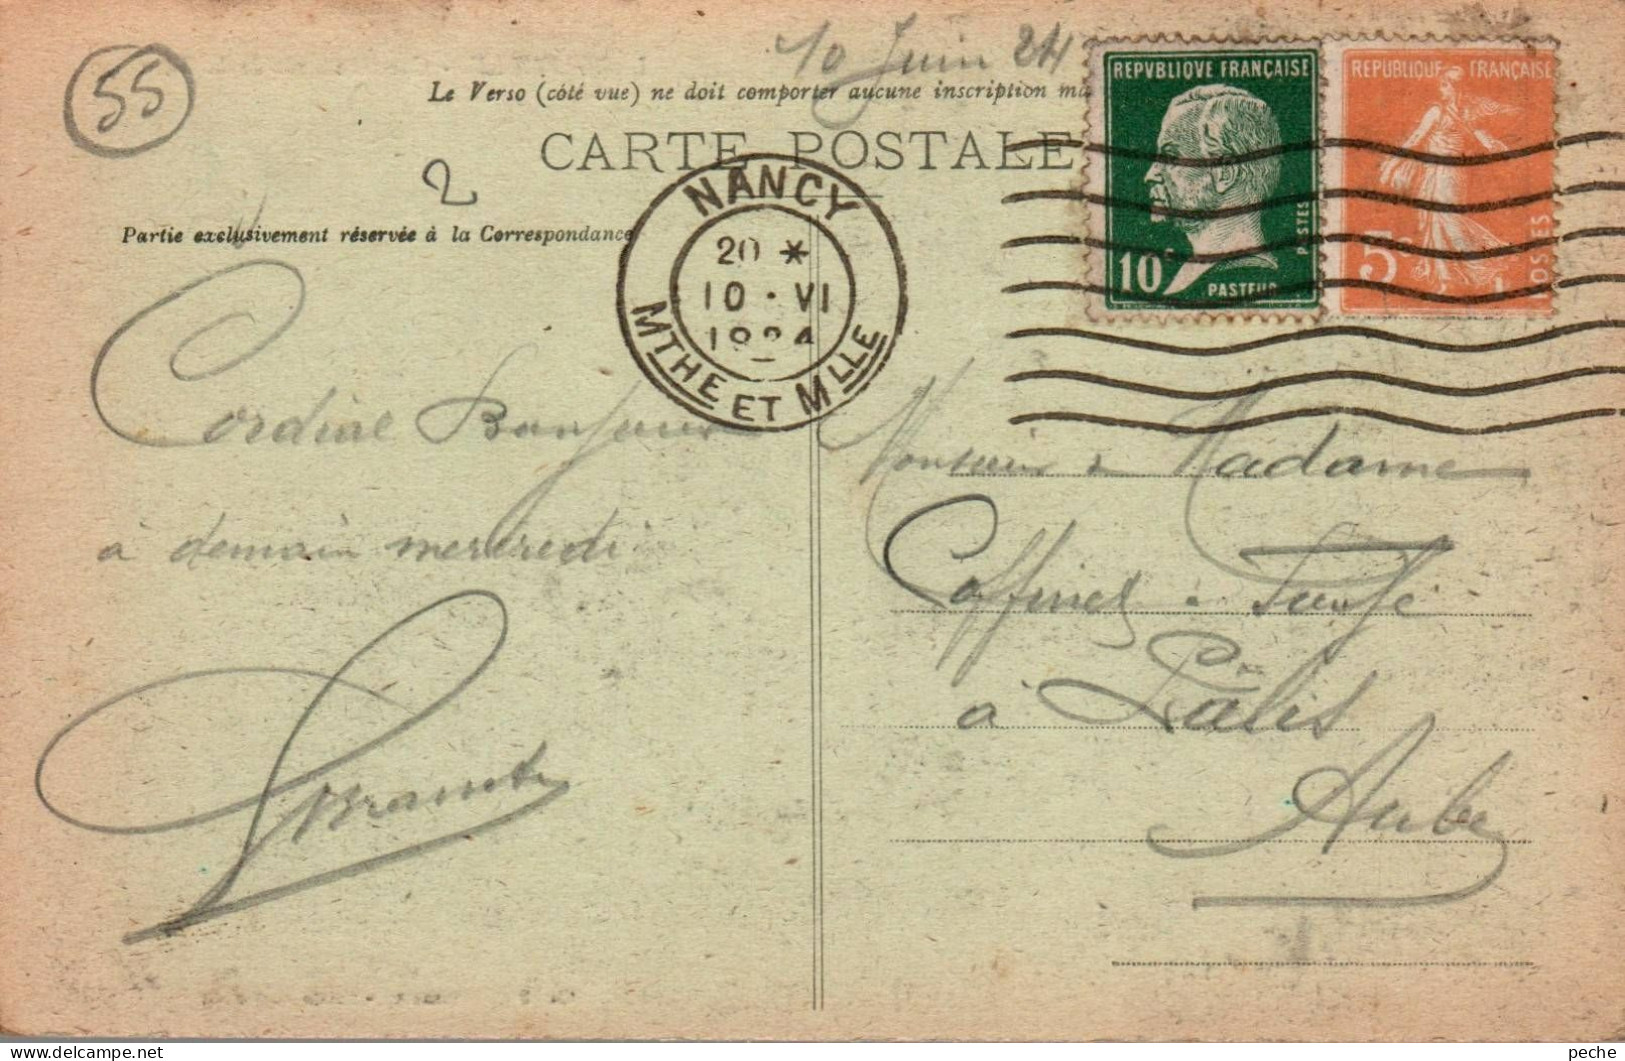 10 Juin 24
55
Le Verso (côté vue) ne doit comporter aucune inscription
CARTE POSTALE
2
Partie exclusivement réservée à la Correspondance
REPVBLIQVE FRANÇAISE
10c
POSTES
PASTEUR
REPUBLIQUE FRANÇAISE
5c
POSTES
NANCY
20 *
10 · VI
1924
MTHE ET MLLE
Cordial Bonjour
à demain mercredi
Monsieur & Madame
à Pâlis
Aube
peche
Delcampe.net